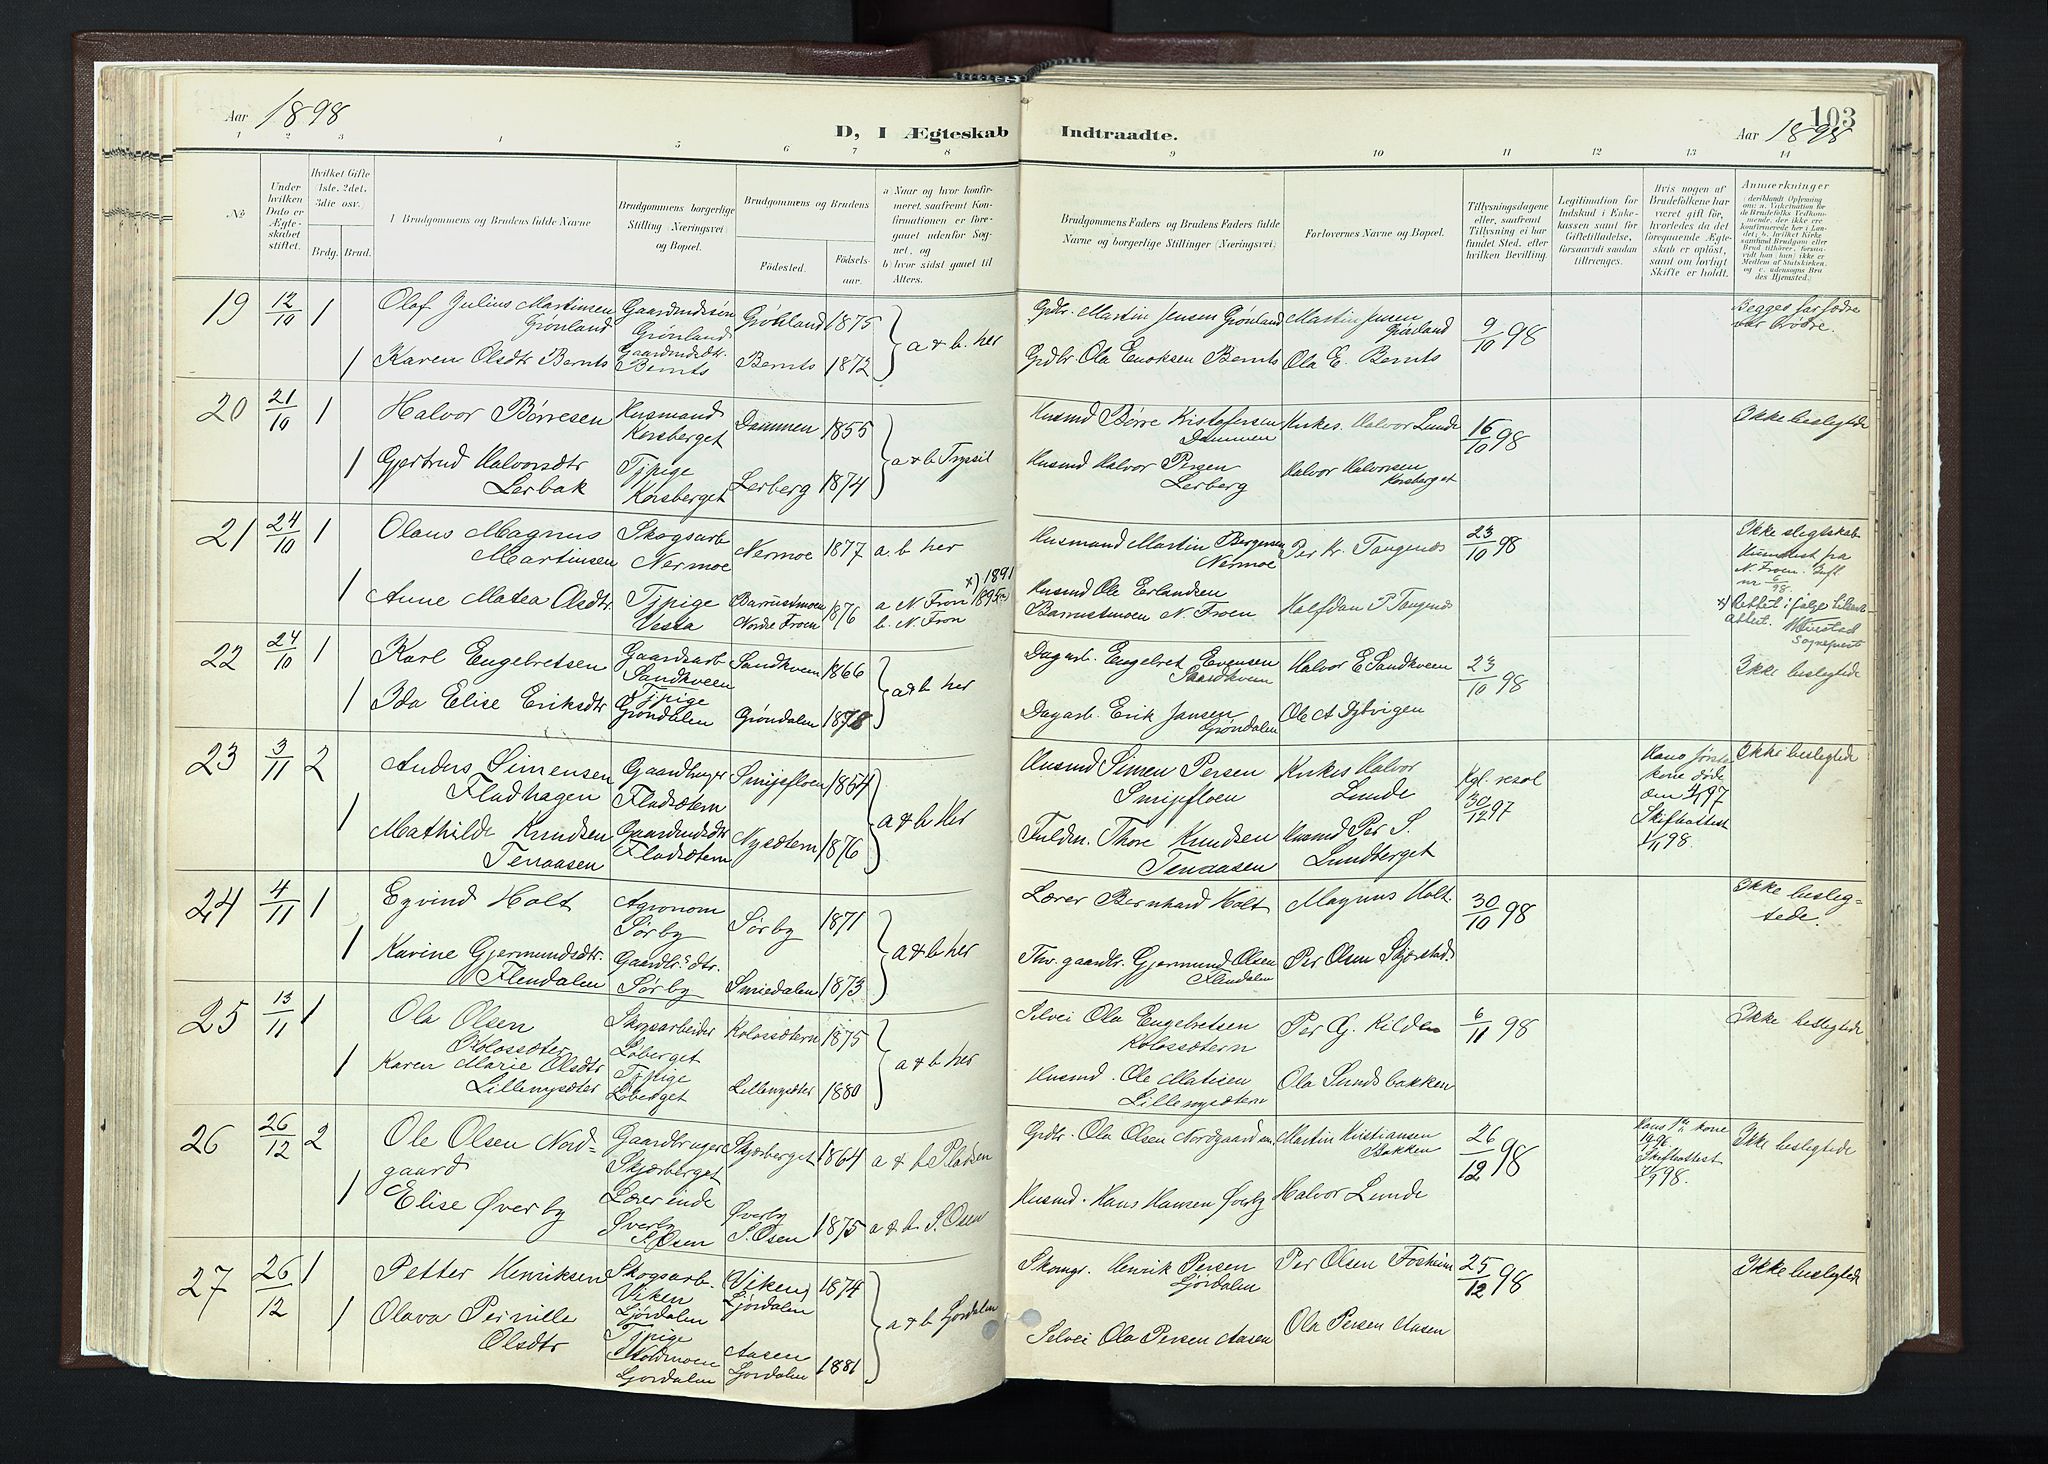 Aar 1898
D, I Ægteskab Indtraadte.
103
Aar 1898
1 2 3 4 5 6 7 8 9 10 11 12 13 14
№
Under
hvilken
Dato er
Ægte-
skabet
stiftet.
Hvilket Gifte
1ste, 2det,
3die osv.
Brdg. Brud.
Brudgommens og Brudens fulde Navne
Brudgommens borgerlige
Stilling (Næringsvei)
og Bopæl.
Brudgommens og Brudens
Fødested.
Fødsels-
aar.
a) Naar og hvor konfir-
meret, saafremt Kon-
firmationen er fore-
gaaet udenfor Sog-
net, og
b) hvor sidst gaaet til
Alters.
Brudgommens Faders og Brudens Faders fulde
Navne og borgerlige Stillinger (Næringsvei)
Forlovernes Navne og Bopæl.
Tillysningsdagene
eller, saafremt
Tillysning ei har
fundet Sted, efter
hvilken Bevilling.
Legitimation for
Indskud i Enke-
kassen samt for
Giftetilladelse,
forsaavidt saadan
tiltrænges.
Hvis nogen af
Brudefolkene har
været gift før,
hvorledes da det
foregaaende Ægte-
skab er opløst,
samt om lovligt
Skifte er holdt.
Anmærkninger
19 12/10 1
Olaf Julius Martinsen
Grønland
Gaardmdssøn
Grønland
Grønland 1875
a & b. her
Grdbr. Martin Jensen Grønland
Martin Jensen
Grønland
9/10 98
Begges farfædre
var brødre.
1 Karen Olsdtr Bernts
Gaardmdsdtr.
Bernts
Bernts 1872
Grdbr Ola Enoksen Bernts
Ola E. Bernts
20 21/10 1
Halvor Børresen
Husmand
Korsberget
Dammen 1855
a & b Trysil
Husmd Børre Kristofersen
Dammen
Kirkes. Halvor Lunde
16/10 98
Ikke beslegtede
1 Gjertrud Halvorsdtr
Lerbak
Tjpige
Korsberget
Lerberg 1874
Husmd Halvor Persen
Lerberg
Halvor Halvorsen
Korsberget
21 24/10 1
Olaus Magnus
Martinsen
Skogsarb
Nermoe
Nermoe 1877 a. b her
Husmand Martin Bergersen
Nermoe
Per Kr. Tangenæs
23/10 98
Ikke slegtskab
fra
N. Froen.
1 Anne Matea Olsdtr.
Tjpige
Vesta
Barrustmoen
Nordre Froen 1876
x) 1891
a N Fron
b. N. Fron
Husmd Ole Erlandsen
Barrustmoen N. Froen
Halfdan P Tangenæs
x) Rettet i følge
attest.
Sogneprest
22 24/10 1
Karl Engebretsen
Gaardsarb
Sandkveen
Sandkveen 1866
a & b her
Dagarb. Engebret Evensen
Sandkveen
Halvor E Sandkveen
23/10 98
Ikke beslegtede
1 Ida Elise Eriksdtr
Tjpige
Grøndalen
Grøndalen 1878
Dagarb. Erik Jansen
Grøndalen
Ole A Dybvigen
23 3/11 2
Anders Simensen
Fladhagen
Gaardbruger
Fladsætern
Smijefloen 1854
a & b Her
Husmd Simen Persen
Smijefloen
Kirkes Halvor
Lunde
Kgl. resol
30/12 97
Hans første
kone døde
97
Skifteattest
98.
Ikke beslegtede
1 Mathilde Knudsen
Tenaasen
Gaardmdsdtr
Fladsætern
Nysætern 1876
Thore Knudsen
Tenaasen
Husmd Per S.
Lundberget
24 4/11 1
Eyvind Holt
Agronom
Sørby
Sørby 1871
a & b her
Lærer Bernhard Holt
Magnus Holt.
30/10 98
Ikke besleg-
tede.
1 Karine Gjermundsdtr.
Flendalen
Gaardbr.s dtr.
Sørby
Smiedalen 1873
Fhv. gaardbr. Gjermund Olsen
Flendalen
Per Olsen Skjærstad.
25 13/11 1
Ola Olsen
Kolossæter
Skogsarbeider
Løberget
Kolossætern 1875
a & b her
Selvei Ola Engebretsen
Kolossætern
Per G. Kilden
6/11 98
Ikke beslegtede
1 Karen Marie Olsdtr
Lillemysæter
Tjpige
Løberget
Lillemysæter 1880
Husmd. Ole Matisen
Lillemysætern
Ola Sundsbakken
26 26/12 2
Ole Olsen Nord-
gaard
Gaardbruger
Skjærberget
Skjærberget 1864 a & b Pladsen
Grdbr. Ola Olsen Nordgaarden
Martin Kristiansen
Bakken
26/12 98
Hans 1ste kone
1896
Skifteattest
98.
Ikke beslegtede
1 Elise Øverby
Lærerinde
Øverby
S. Osen
Øverby
S. Osen 1875 a & b S. Osen
Husmd. Hans Hansen Øverby
Halvor Lunde
27 26/12 1
Petter Henriksen
Skogsarb.
Viken
Ljørdalen
Viken
Ljørdalen 1874
a & b Ljørdalen
Henrik Persen
Ljørdalen
Per Olsen Fosheim
25/12 98
Ikke beslegtede
1 Olava Pernille
Olsdtr
Tjpige
Noldmoen
Ljørdalen
Aasen
Ljørdalen 1881
Selvei Ola Persen Aasen
Ola Persen Aasen